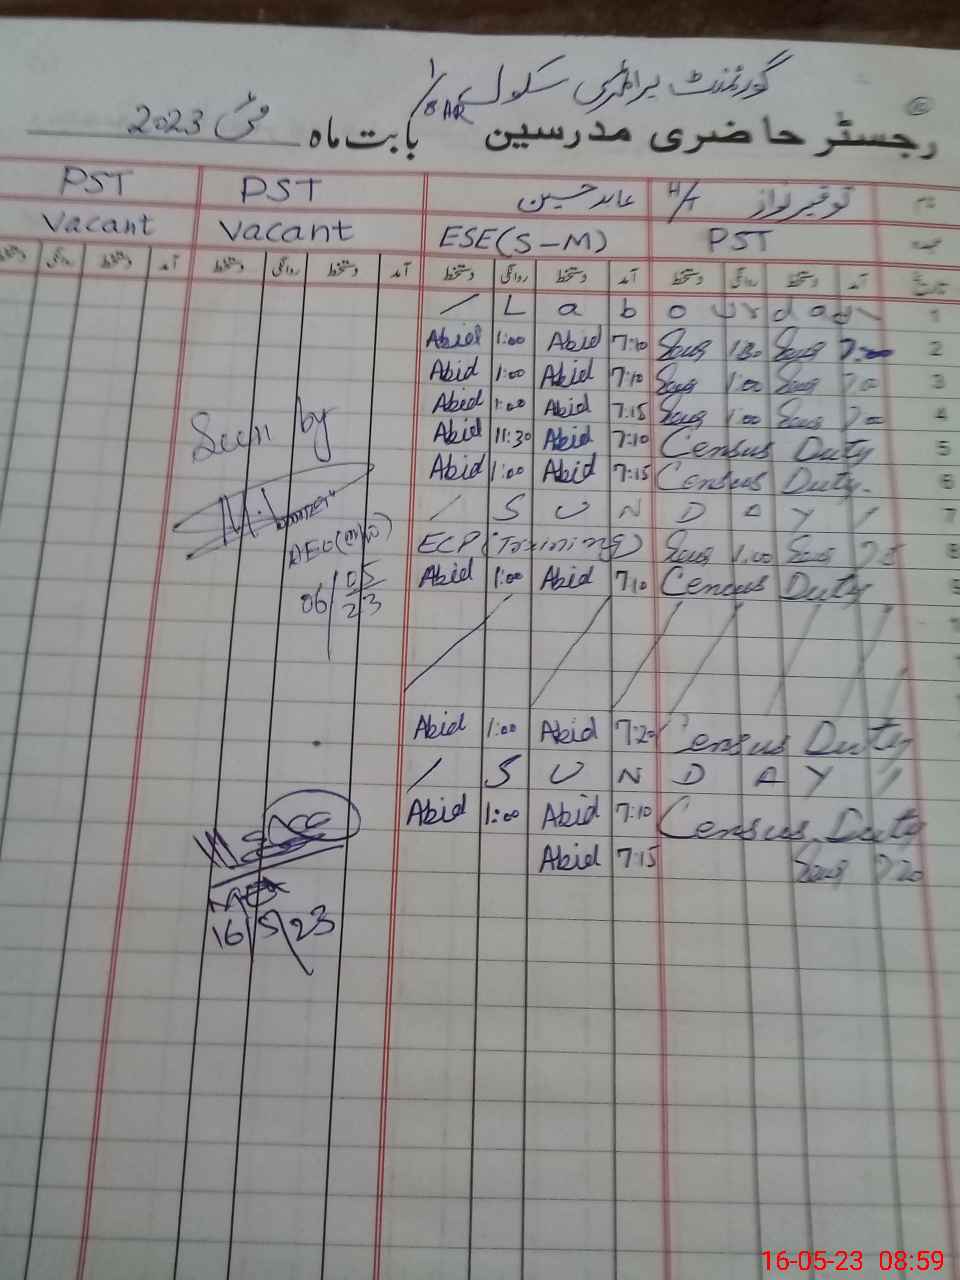 گورنمنٹ پرائمری سکول 1/8AR
رجسٹر حاضری مدرسین بابت ماہ مئی 2023
نام توقیر نواز H/T عابد حسین PST PST
عہدہ PST ESE(S-M) Vacant Vacant
تاریخ آمد دستخط روانگی دستخط آمد دستخط روانگی دستخط آمد دستخط روانگی دستخط دستخط روانگی دستخط آمد
/ L a b o u r d a y \ 1
Abid 1:00 Abid 7:10 1:30 7:00 2
Abid 1:00 Abid 7:10 1:00 7:00 3
Abid 1:00 Abid 7:15 1:00 7:00 4
Abid 11:30 Abid 7:10 Census Duty 5
Abid 1:00 Abid 7:15 Census Duty. 6
/ S U N D A Y / 7
ECP (Training) 1:00 8
Abid 1:00 Abid 7:10 Census Duty 9
Seen by
AEO
06/05/23
Abid 1:00 Abid 7:20 Census Duty
/ S U N D A Y /
Abid 1:00 Abid 7:10 Census Duty
Abid 7:15 7:20
16/5/23
16-05-23 08:59